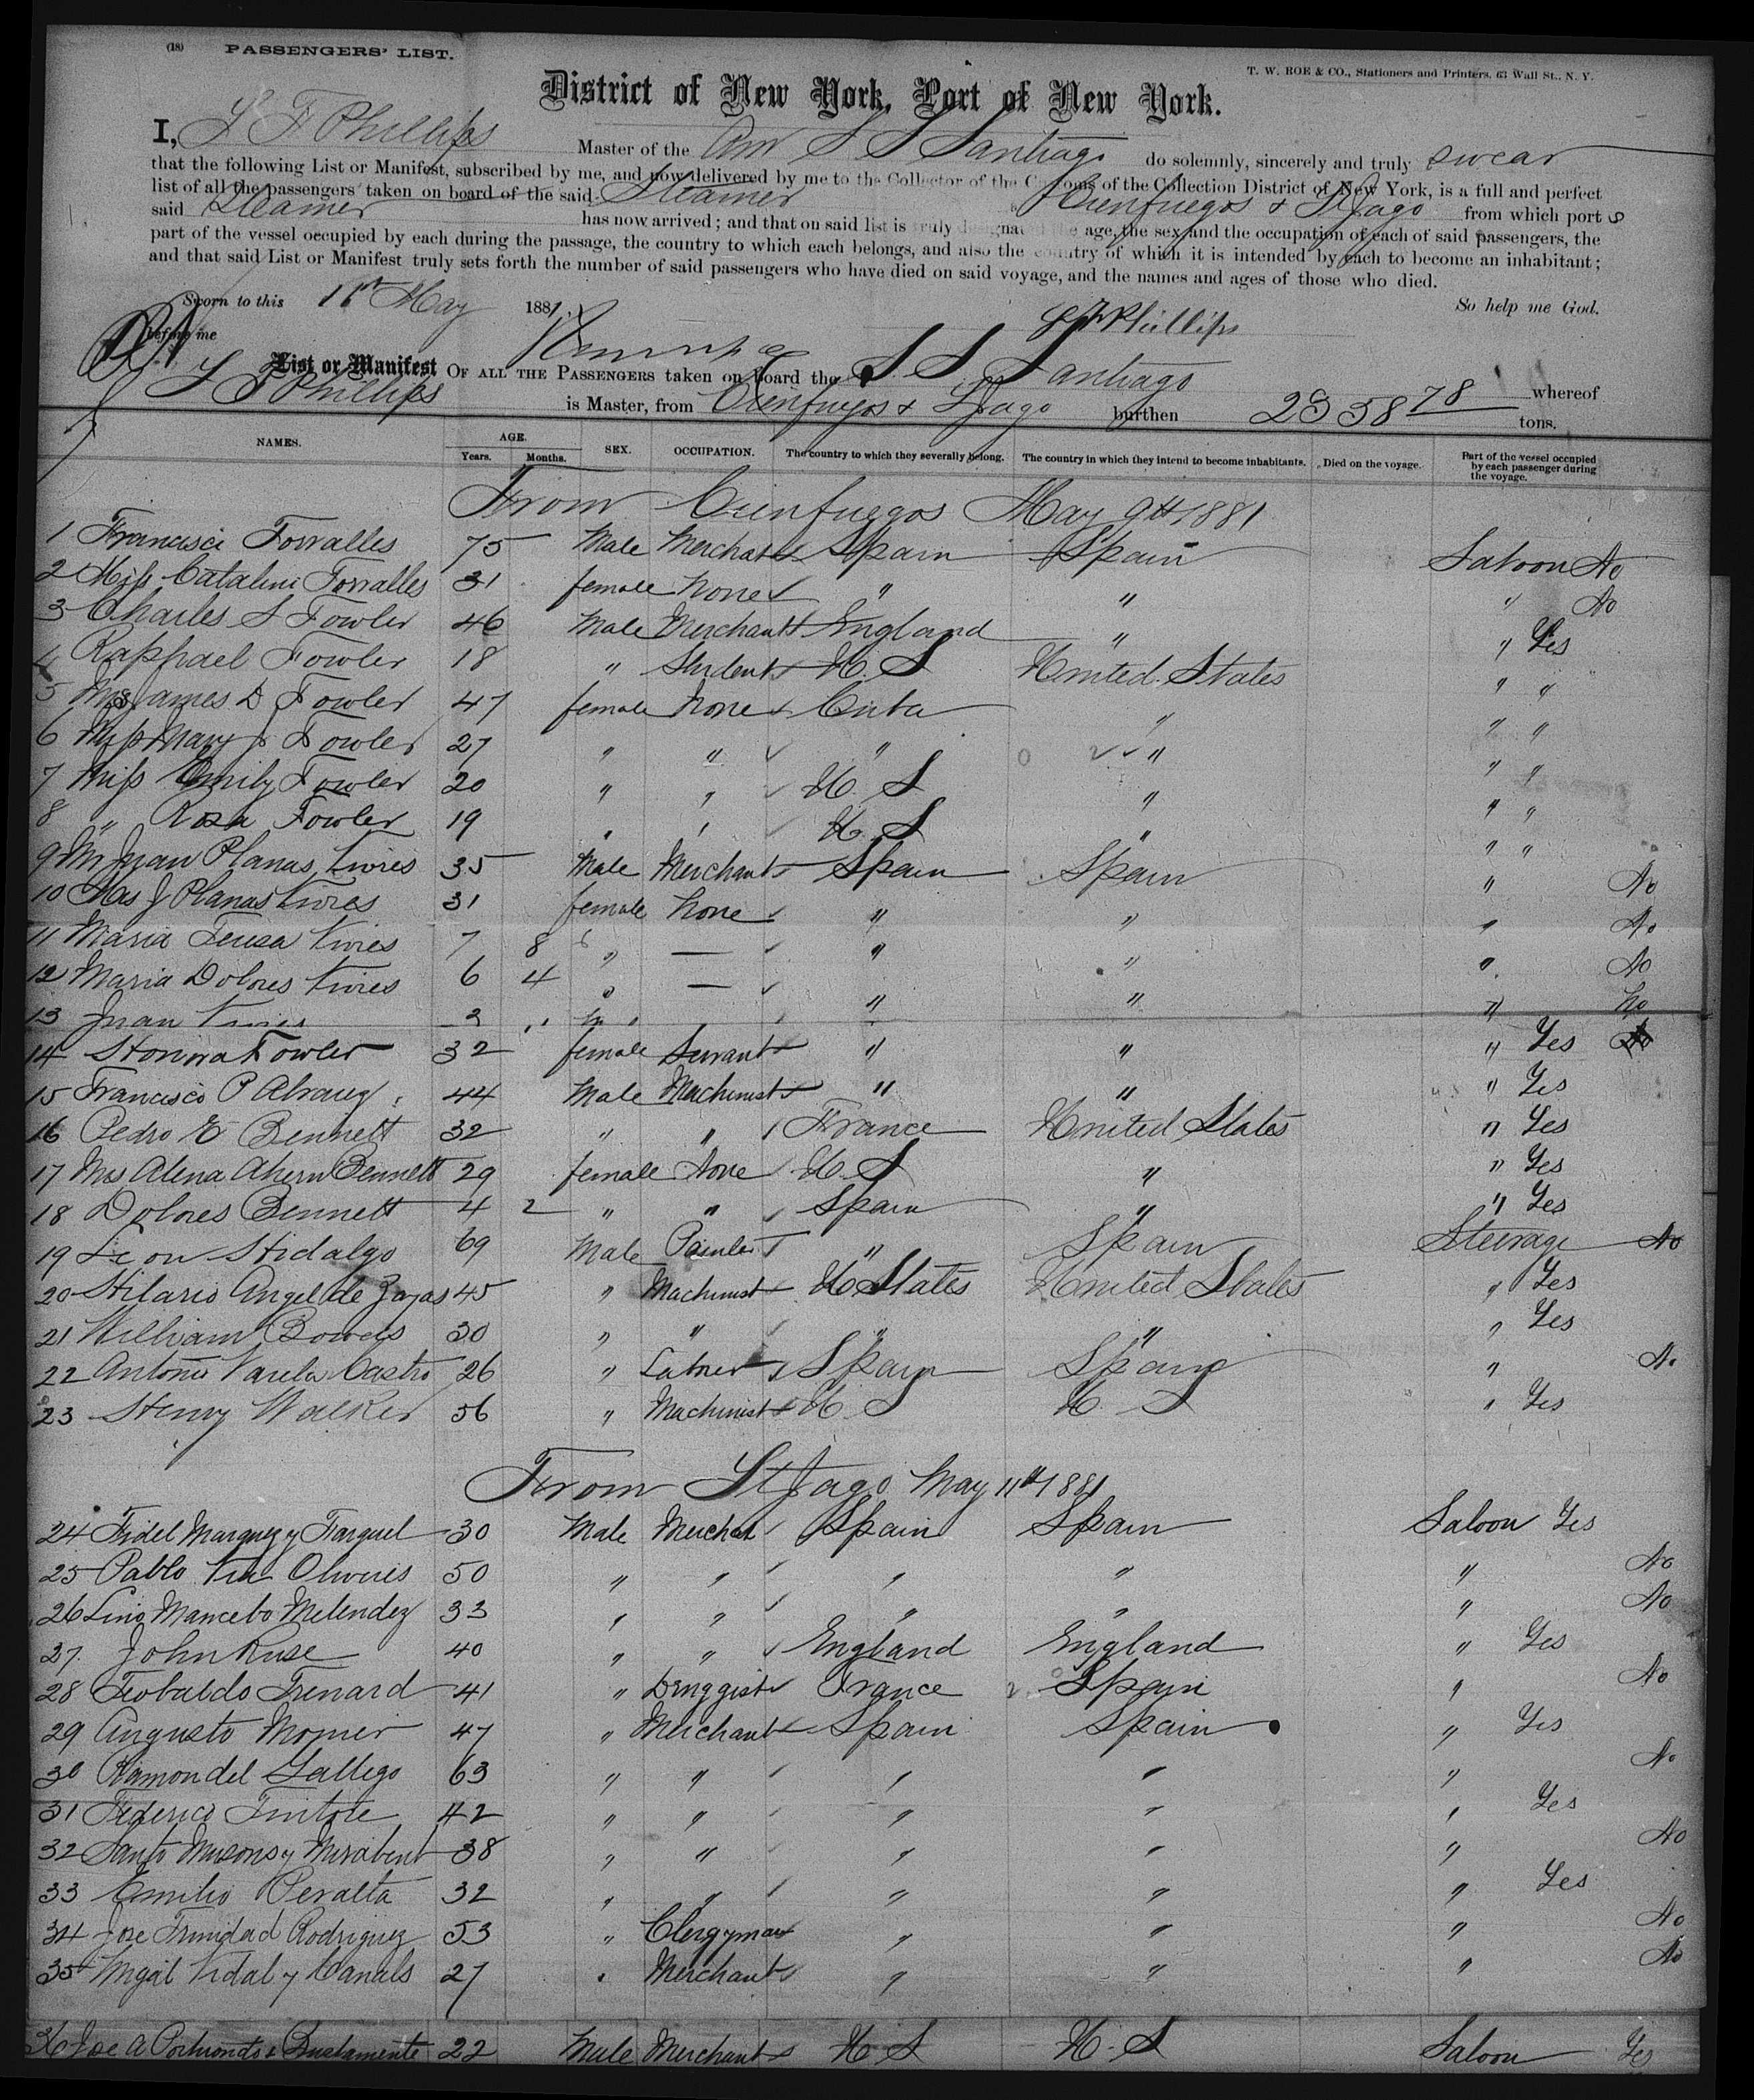 (18) PASSENGERS' LIST.
T. W. ROE & CO., Stationers and Printers, 63 Wall St., N. Y.
District of New York, Port of New York.
I, L F Phillips Master of the Am S S Santiago do solemnly, sincerely and truly swear
that the following List or Manifest, subscribed by me, and now delivered by me to the Collector of the Customs of the Collection District of New York, is a full and perfect
list of all the passengers taken on board of the said Steamer Cienfuegos & St Jago from which port
said Steamer has now arrived; and that on said list is truly designated the age, the sex and the occupation of each of said passengers, the
part of the vessel occupied by each during the passage, the country to which each belongs, and also the country of which it is intended by each to become an inhabitant;
and that said List or Manifest truly sets forth the number of said passengers who have died on said voyage, and the names and ages of those who died.
Sworn to this 16th May 1881. So help me God.
before me L F Phillips
List or Manifest OF ALL THE PASSENGERS taken on board the S S Santiago whereof
L F Phillips is Master, from Cienfuegos & St Jago burthen 2358 78 tons.
NAMES. AGE. Years. Months. SEX. OCCUPATION. The country to which they severally belong. The country in which they intend to become inhabitants. Died on the voyage. Part of the vessel occupied by each passenger during the voyage.
From Cienfuegos May 9th 1881
1 Francisca Torralles 75 Male Merchant Spain Spain Saloon No
2 Miss Catalini Torralles 31 female None " " " No
3 Charles S Fowler 46 Male Merchant England " " Yes
4 Raphael Fowler 18 " Student U. S United States " "
5 Mrs James D Fowler 47 female None Cuba " " "
6 Miss Mary J Fowler 27 " " " " " "
7 Miss Emily Fowler 20 " " U. S " " "
8 " Rosa Fowler 19 " " U. S " " "
9 Mr Juan Planas Vives 35 Male Merchant Spain Spain " No
10 Mrs J Planas Vives 31 female None " " " No
11 Maria Teresa Vives 7 8 " — " " " No
12 Maria Dolores Vives 6 4 " — " " " No
13 Juan Vives
14 Honora Fowler 32 female Servant " " " Yes
15 Francisco P 44 Male Machinist " " " Yes
16 Pedro E Bennett 32 " " France United States " Yes
17 Mrs Alena Ahern Bennett 29 female None U. S " " Yes
18 Dolores Bennett 4 2 " " Spain " " Yes
19 Leon Hidalgo 69 Male Painter " Spain Steerage No
20 Hilario Angel de Zayas 45 " Machinist U States United States " Yes
21 William Bowers 30 " " " " " Yes
22 Antonio Varela Castro 26 " Laborer Spain Spain " No
23 Henry Walker 56 " Machinist U. S U. S " Yes
From St Jago May 11th 1881
24 Fidel Marquez y 30 Male Merchant Spain Spain Saloon Yes
25 Pablo Oliveres 50 " " " " " No
26 Lino Mancebo Melendez 33 " " " " " No
27. John Ruse 40 " " England England " Yes
28 Teobaldo Trenard 41 " Druggist France Spain " No
29 Augusto 47 " Merchant Spain Spain " Yes
30 Ramon del Gallego 63 " " " " " No
31 Federico Tintore 42 " " " " " Yes
32 Santo y Mirabent 38 " " " " " No
33 Emilio Peralta 32 " " " " " Yes
34 Jose Trinidad Rodriguez 53 " Clergyman " " " No
35 Vidal y Canals 27 " Merchant " " " No
36 Jose A Portuondo & Bustamente 22 Male Merchant U S U. S Saloon Yes